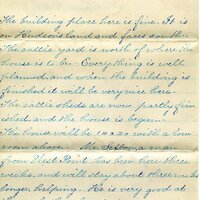 The building place here is fine. It is
on Hudsons land and faces south.
The cattle yard is north of where the
house is to be. Everything is well
planned, and when the building is
finished it will be very nice here.
The cattle sheds are now partly fin-
ished, and the house is begun.
The house will be 14 x 20 with a low
room above. Mr. a man
from West Point has been here three
weeks and will stay about three weeks
longer, helping. He is very good at